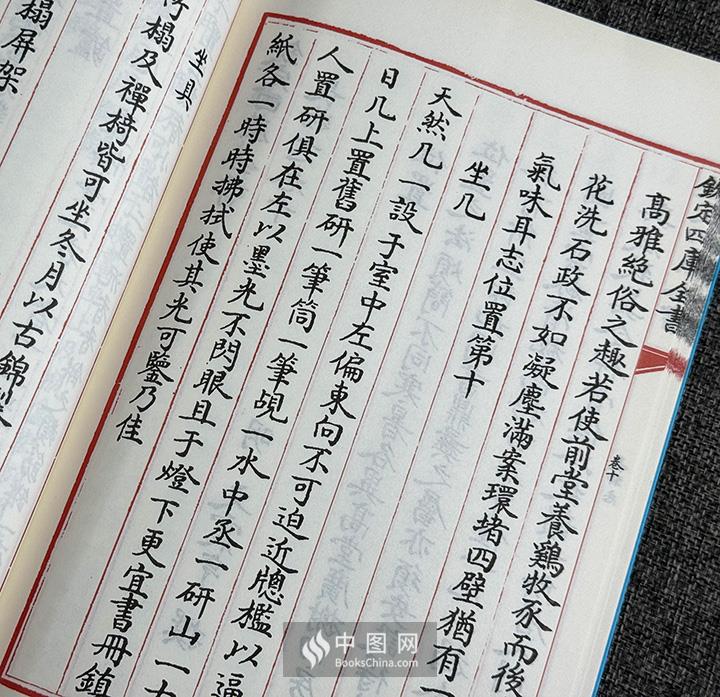 欽定四庫全書
卷十
高雅絕俗之趣若使前堂養鷄牧豕而後
花洗石政不如凝塵滿案環堵四壁猶有一
氣味耳志位置第十
坐几
天然几一設于室中左偏東向不可迫近牕檻以逼
日几上置舊研一筆筒一筆覘一水中丞一研山一
人置研俱在左以墨光不閃眼且于燈下更宜書冊鎮
紙各一時時拂拭使其光可鑒乃佳
坐具
竹榻及禪椅皆可坐冬月以古錦
榻屏架
中图网
BooksChina.com